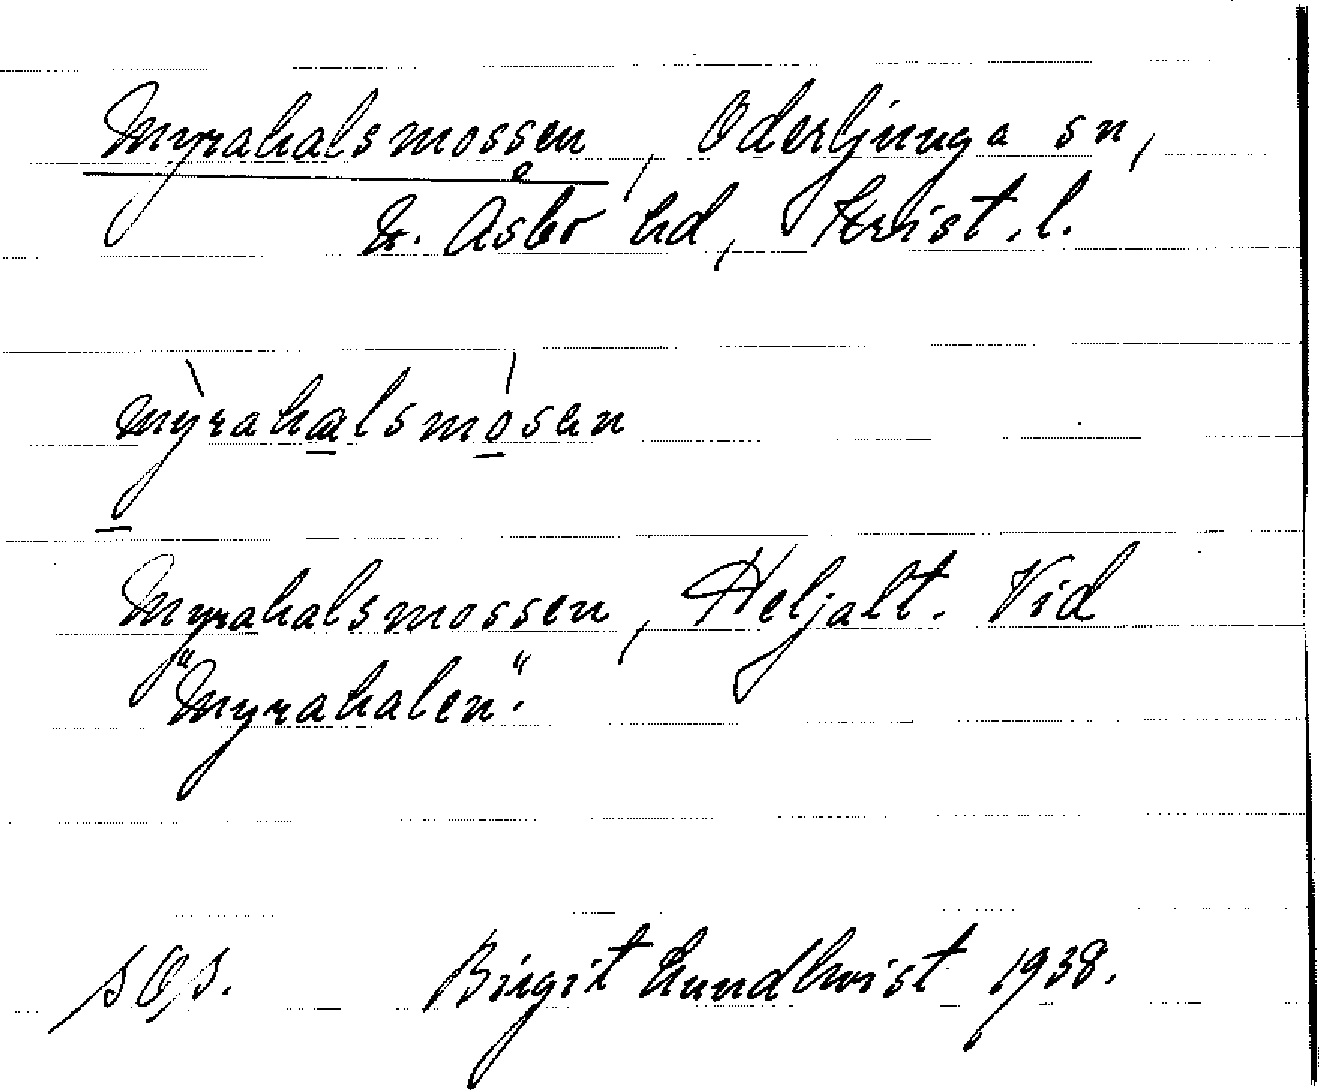 Myrahalsmossen, Oderljunga sn,
N. Åsbo hd, Krist. l.
myrahalsmosen
Myrahalsmossen, Heljalt. Vid
"Myrahalen".
Birgit Lundkvist 1938.